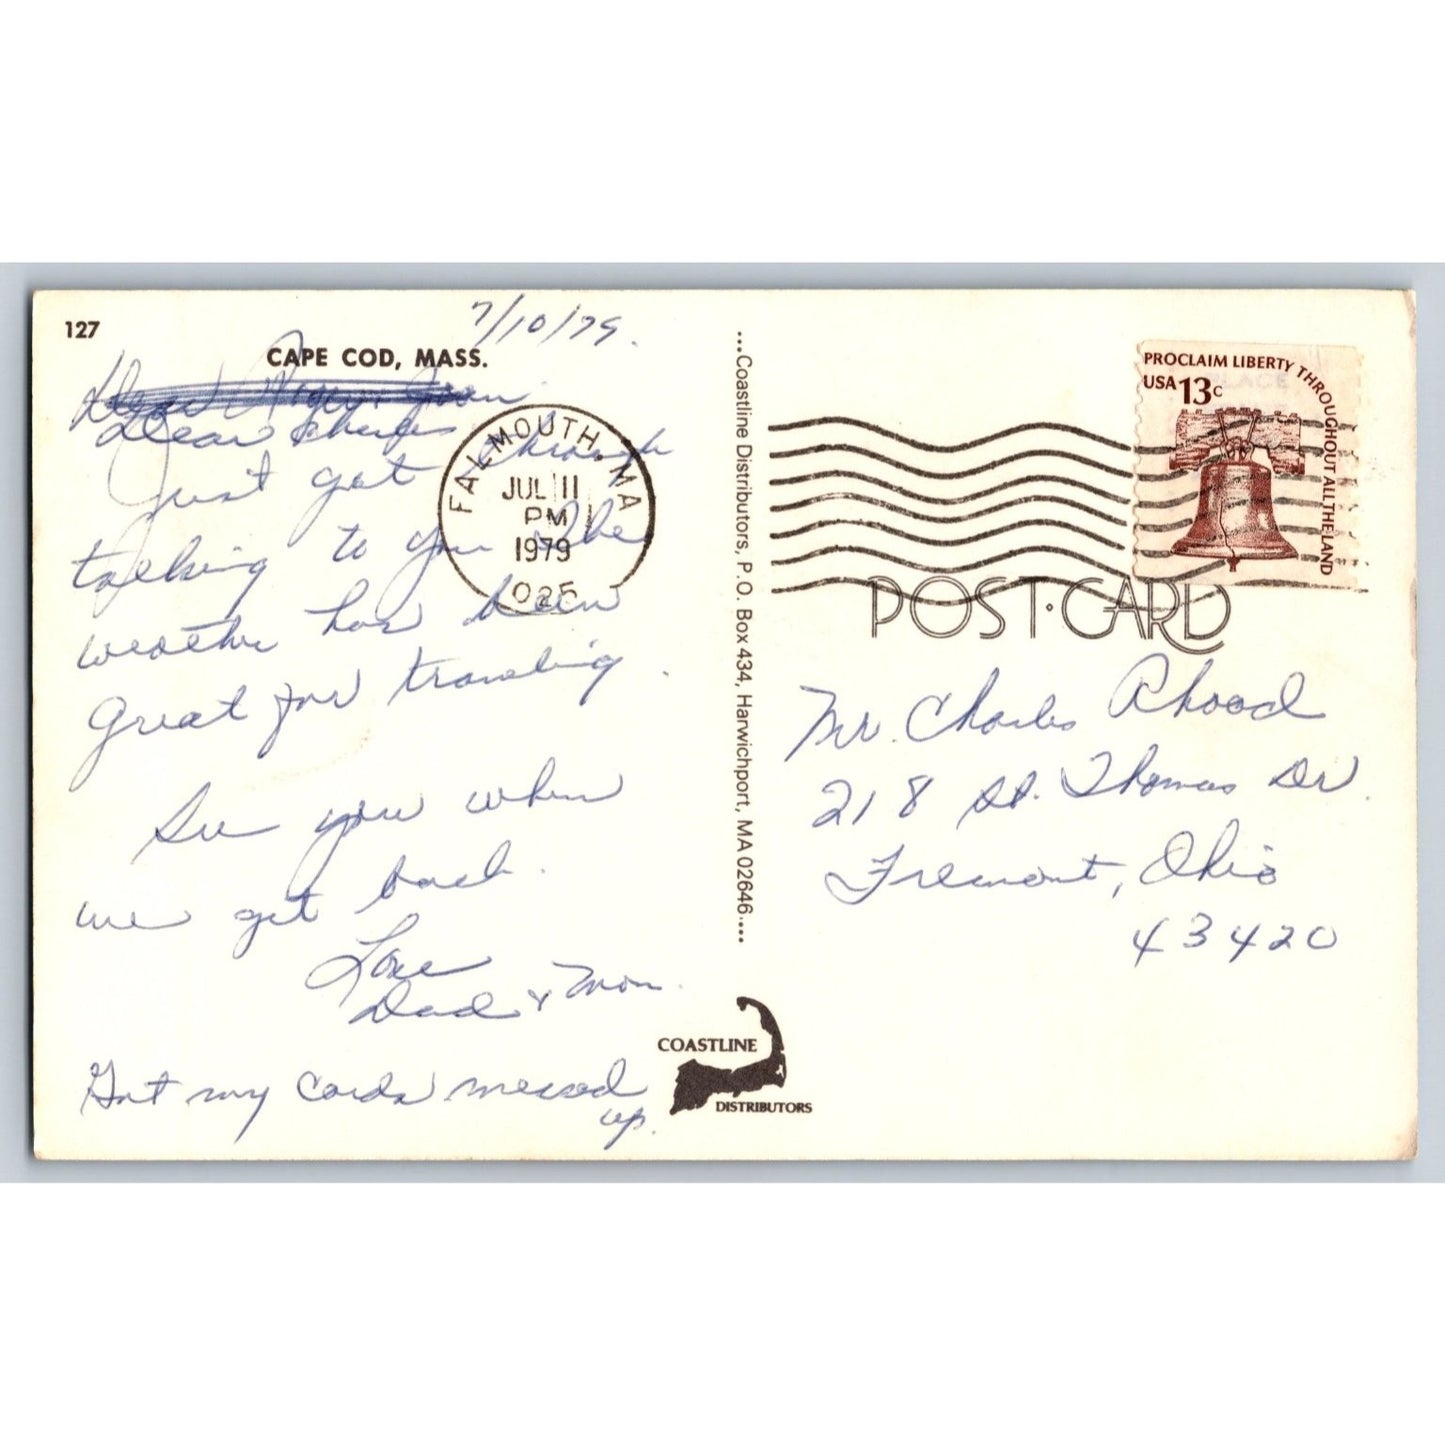 127
CAPE COD, MASS.
7/10/79.
Dear
Dear Charles
Just got through
talking to you The
weather has been
great for traveling.
See you when
we get back.
Love
Dad & Mom.
Got my cards messed
up.
FALMOUTH, MA
JUL 11
PM
1979
025
...Coastline Distributors, P.O. Box 434, Harwichport, MA 02646....
COASTLINE
DISTRIBUTORS
PROCLAIM LIBERTY THROUGHOUT ALL THE LAND
USA 13c
POST·CARD
Mr. Charles Rhood
218 St. Thomas Dr.
Fremont, Ohio
43420